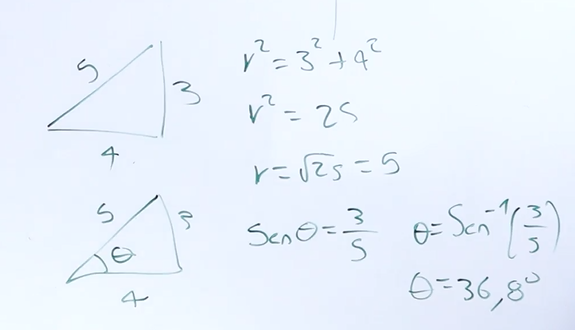 5
3
4
r² = 3² + 4²
r² = 25
r = √25 = 5
5
3
θ
4
Sen θ = 3/5
θ = Sen⁻¹(3/5)
θ = 36,8°